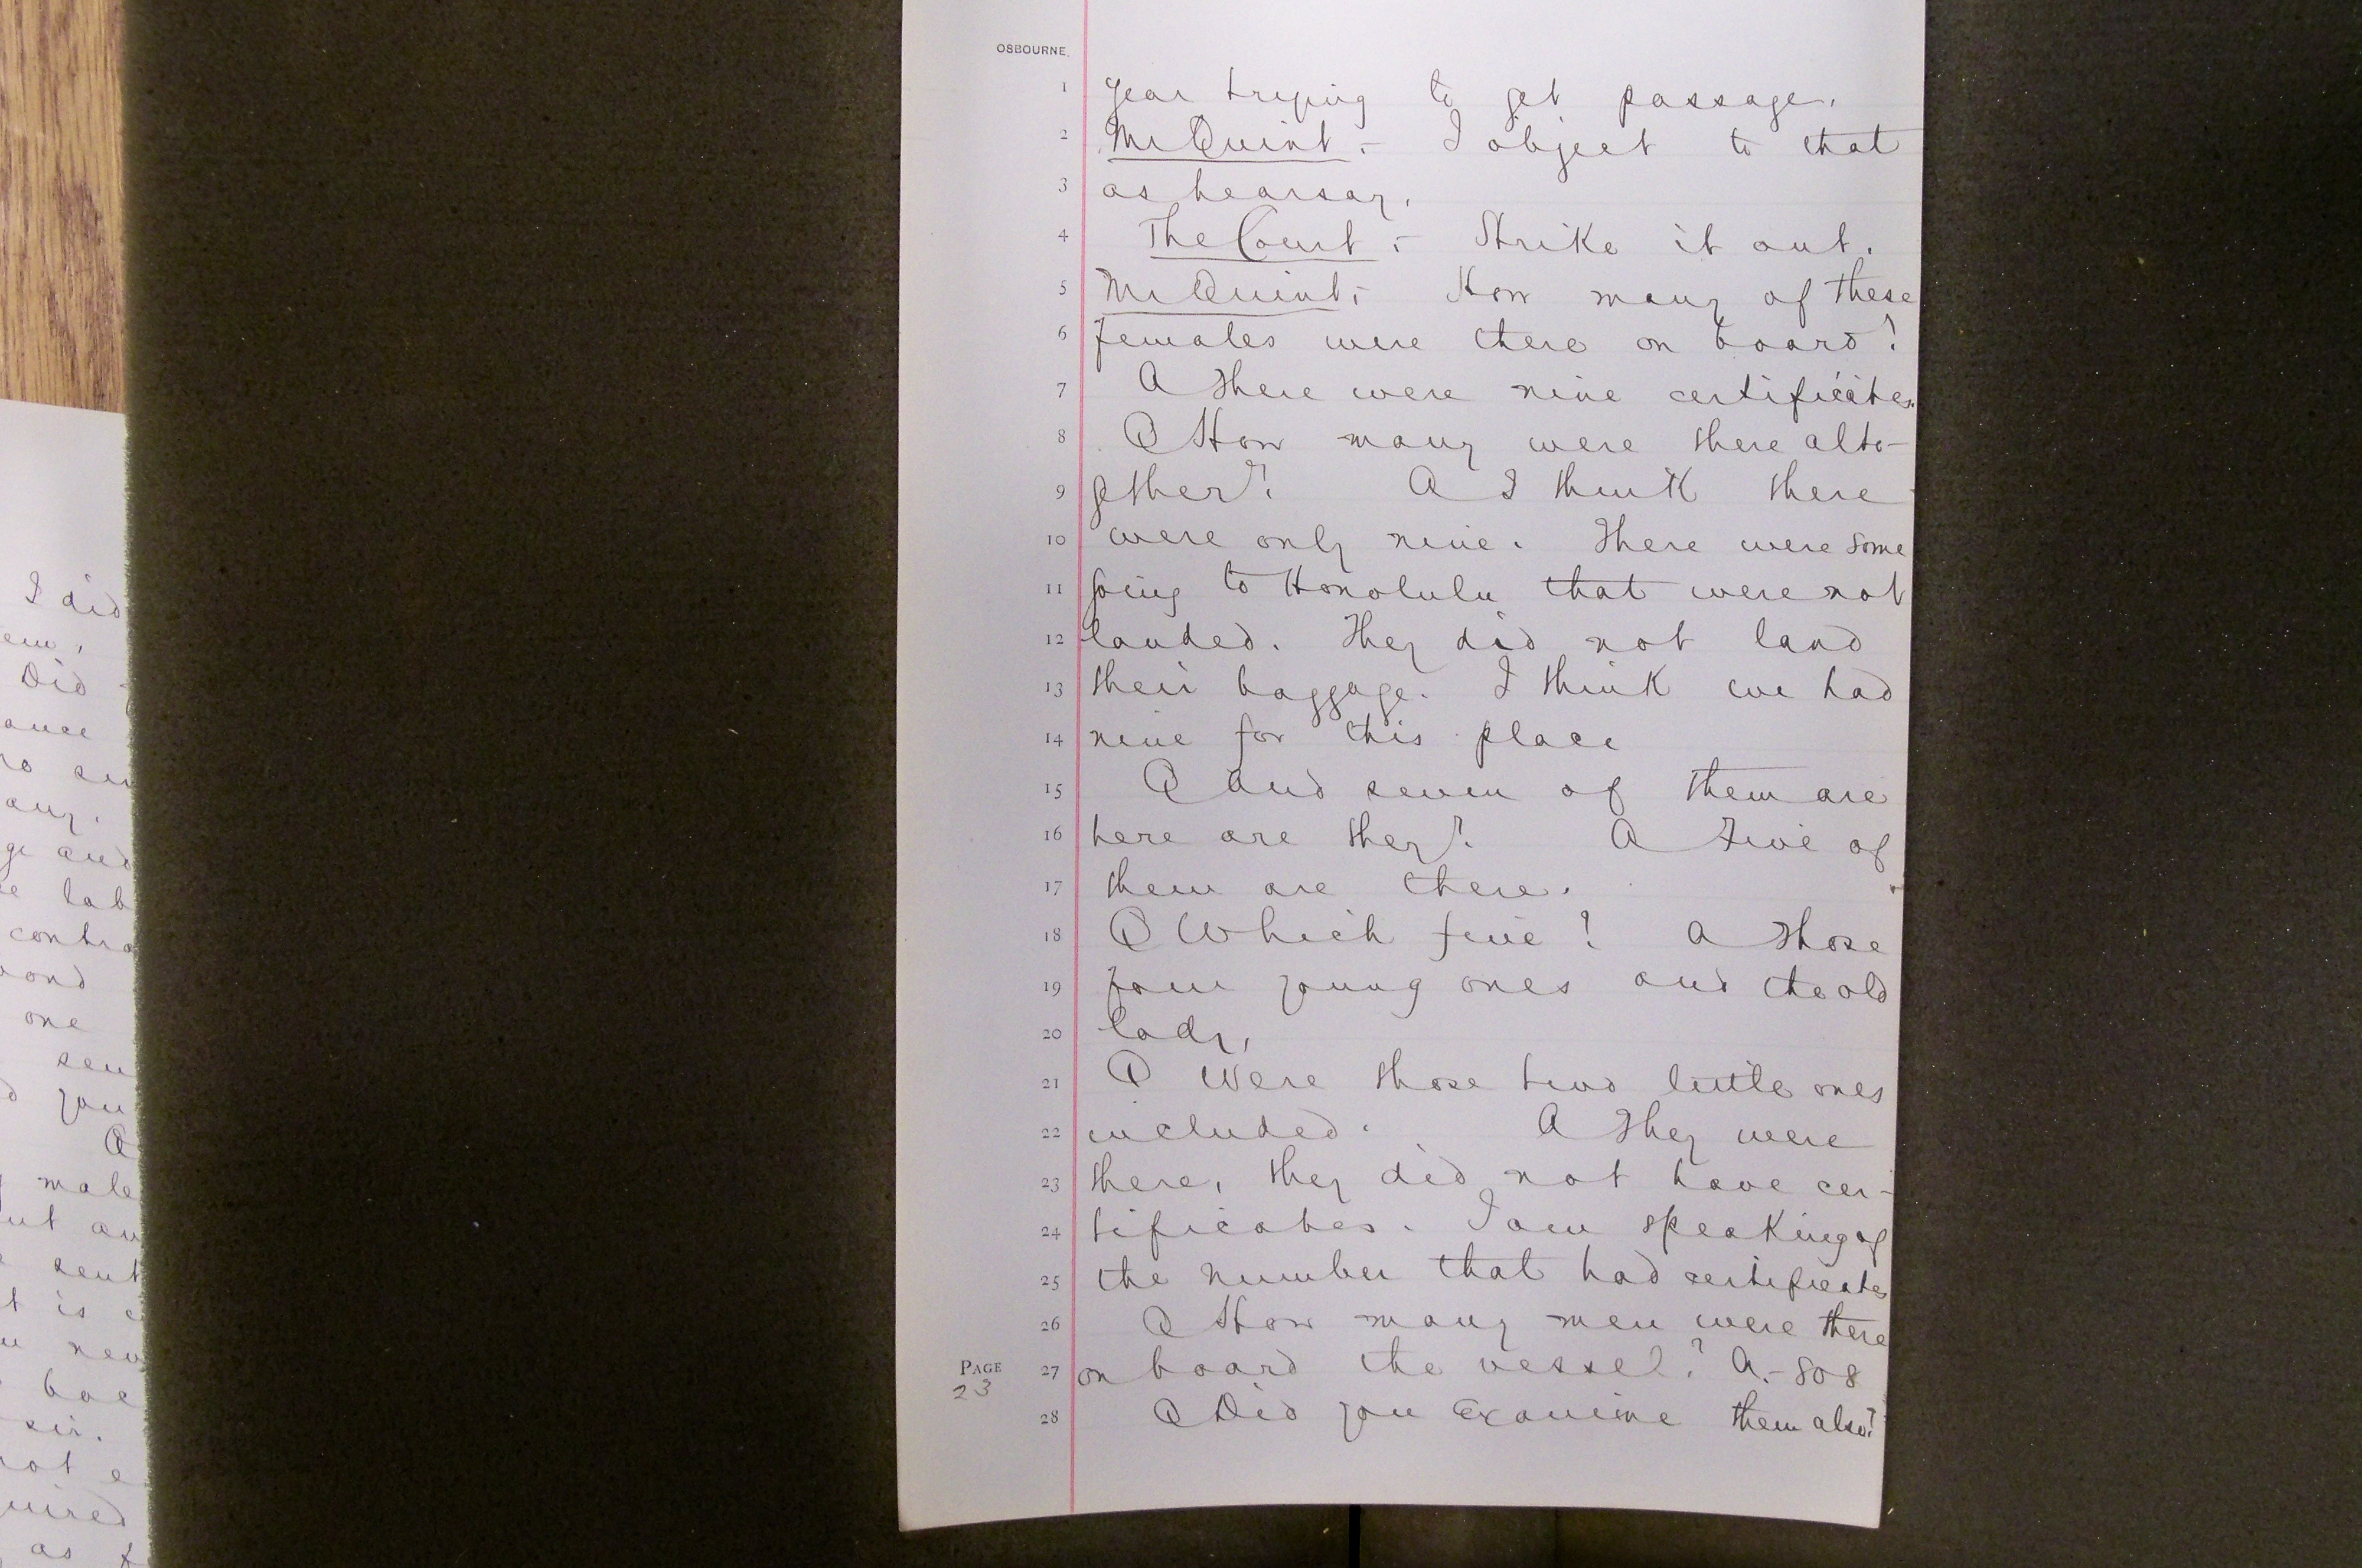 OSBOURNE.
1 year trying to get passage.
2 Mr Quint :- I object to that
3 as hearsay.
4 The Court :- Strike it out.
5 Mr Quint :- How many of these
6 females were there on board?
7 A There were nine certificates.
8 Q How many were there alto-
9 gether? A I think there
10 were only nine. There were some
11 going to Honolulu that were not
12 landed. They did not land
13 their baggage. I think we had
14 nine for this place
15 Q And seven of them are
16 here are they? A Five of
17 them are there.
18 Q Which five? A Those
19 four young ones and the old
20 lady.
21 Q Were those two little ones
22 included. A They were
23 there, they did not have cer-
24 tificates. I am speaking of
25 the number that had certificates
26 Q How many men were there
PAGE 27 on board the vessel? A.- 808
23
28 Q Did you Examine them also?
I did
Did
ance
any.
and
contra
one
sen
you
Q
male
sent
is
sir.
not
as